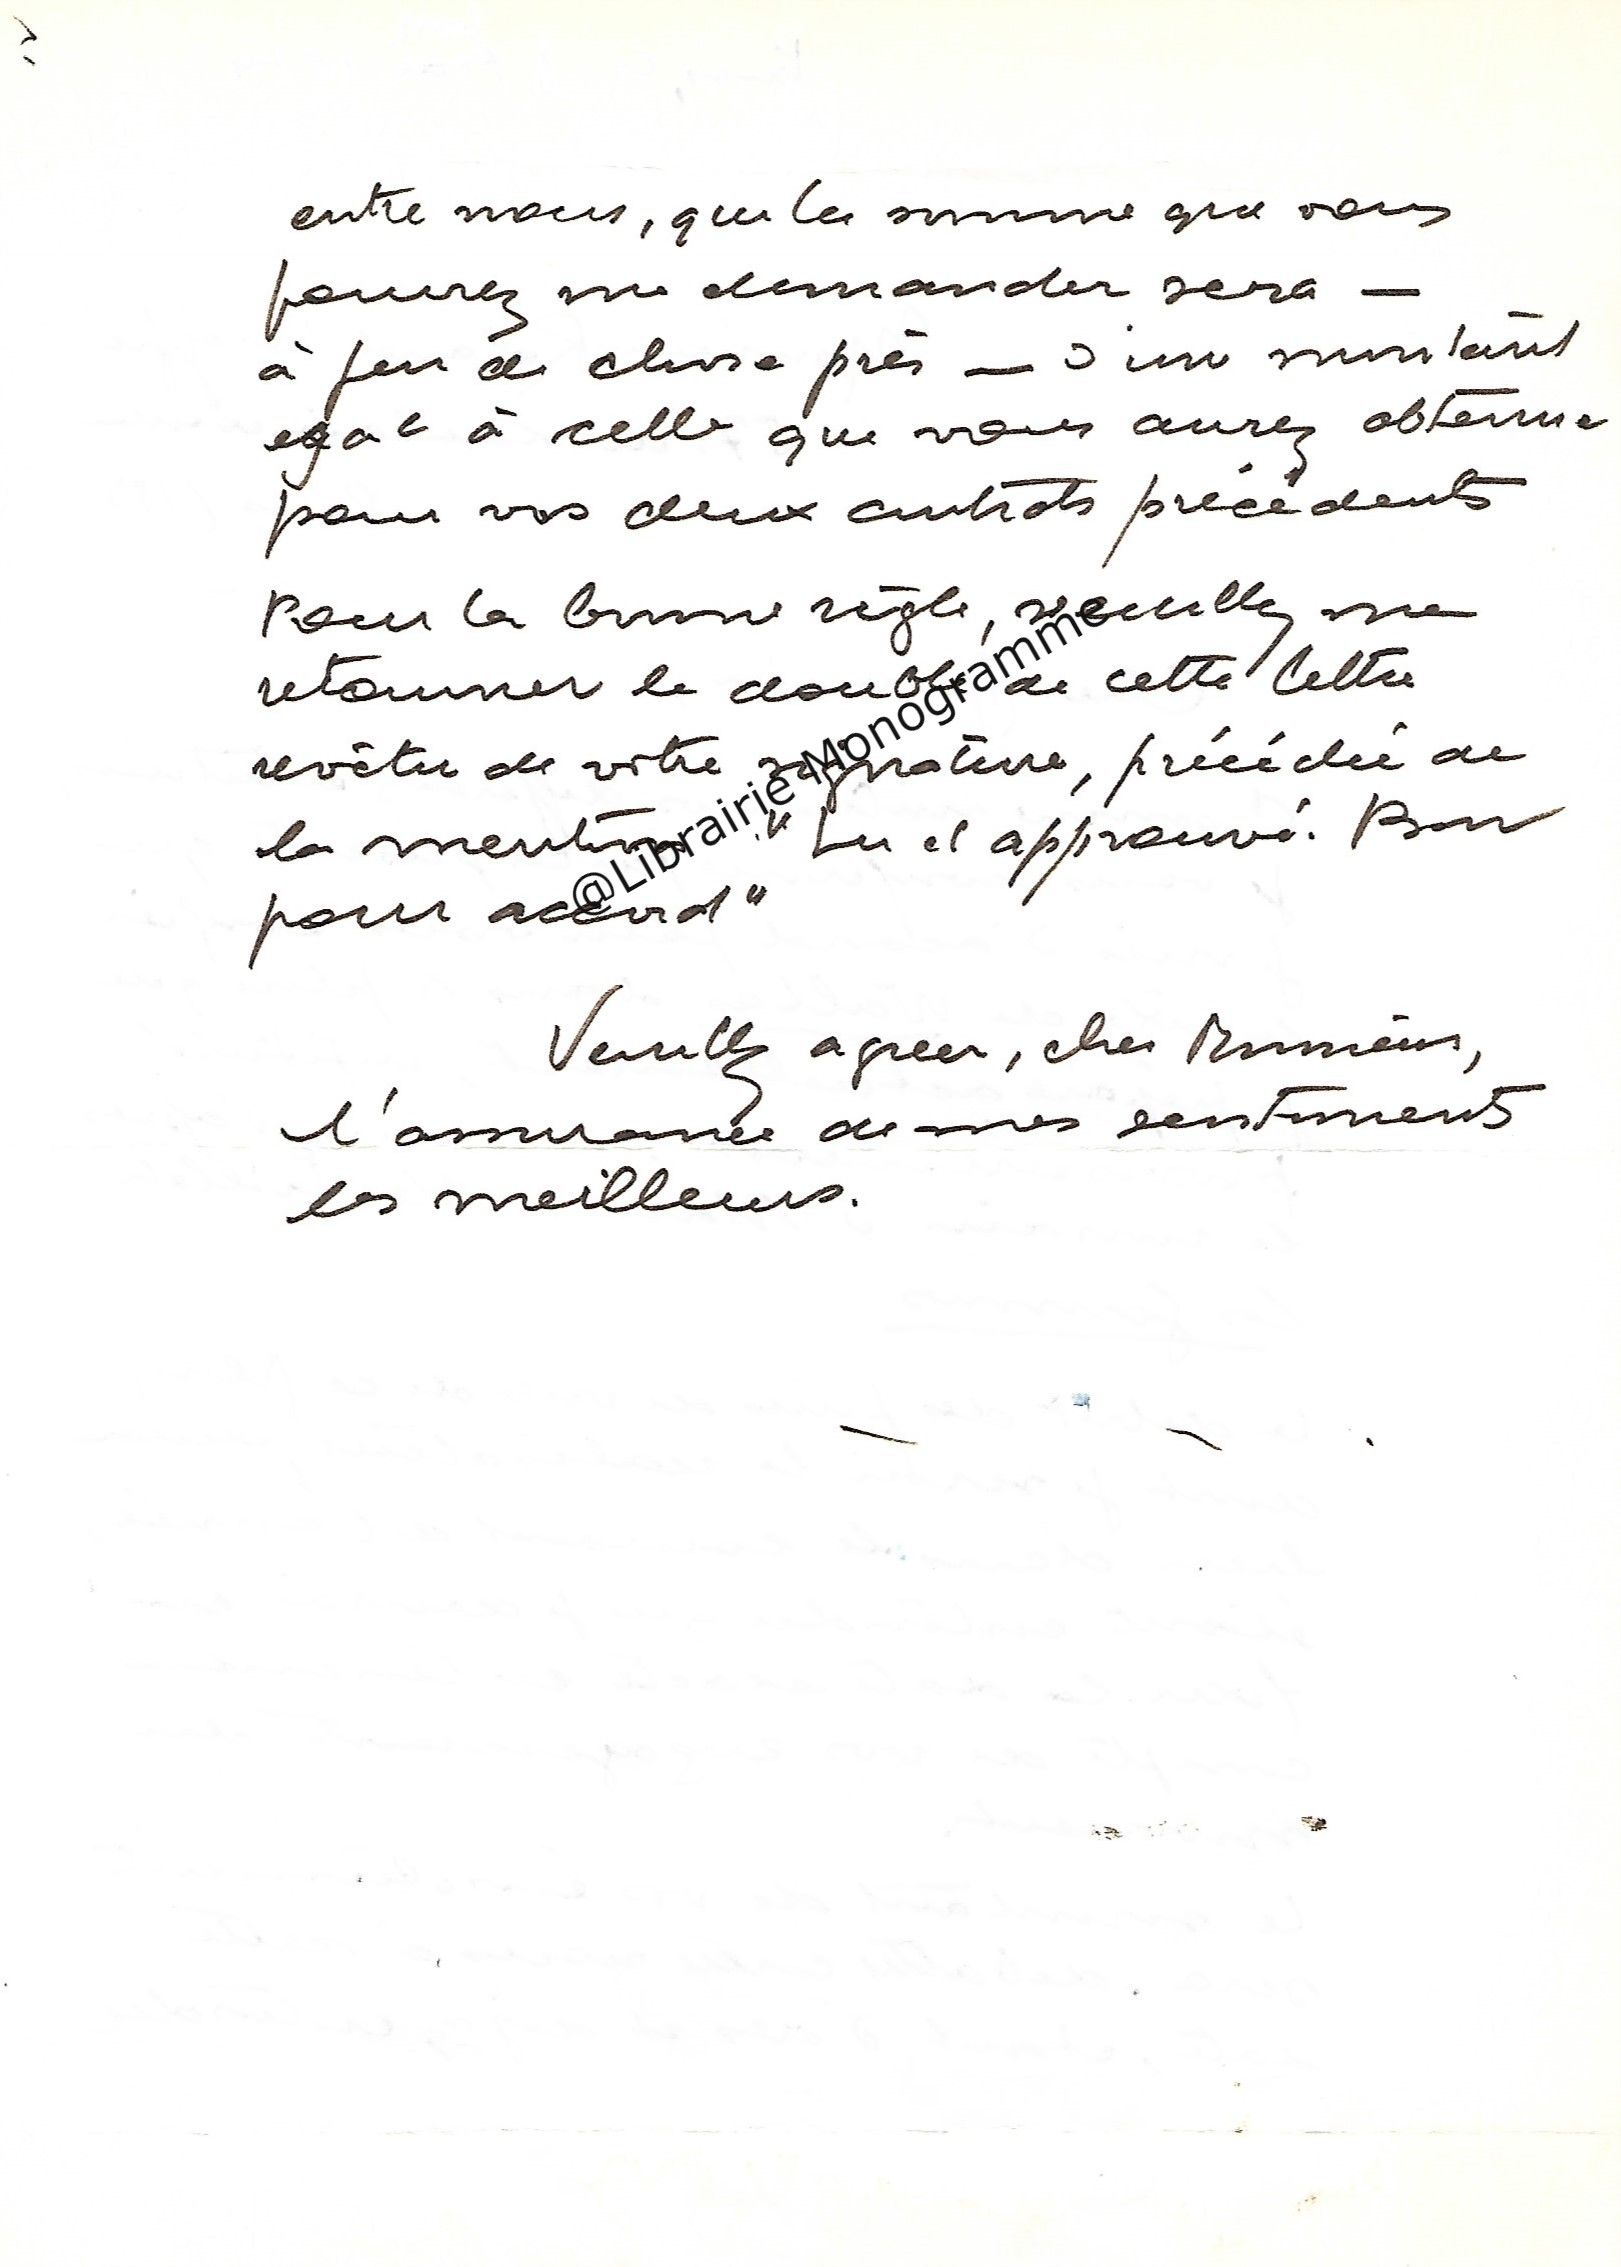 entre nous, que la somme que vous
pourrez me demander sera —
à peu de chose près — d'un montant
egal à celle que vous aurez obtenue
pour vos deux contrats précédents
Pour la bonne règle, veuillez me
retourner le double de cette lettre
revêtu de votre signature, précédée de
la mention "Lu et approuvé. Bon
pour accord"
Veuillez agréer, cher Monsieur,
l'assurance de mes sentiments
les meilleurs.
@Librairie Monogramme